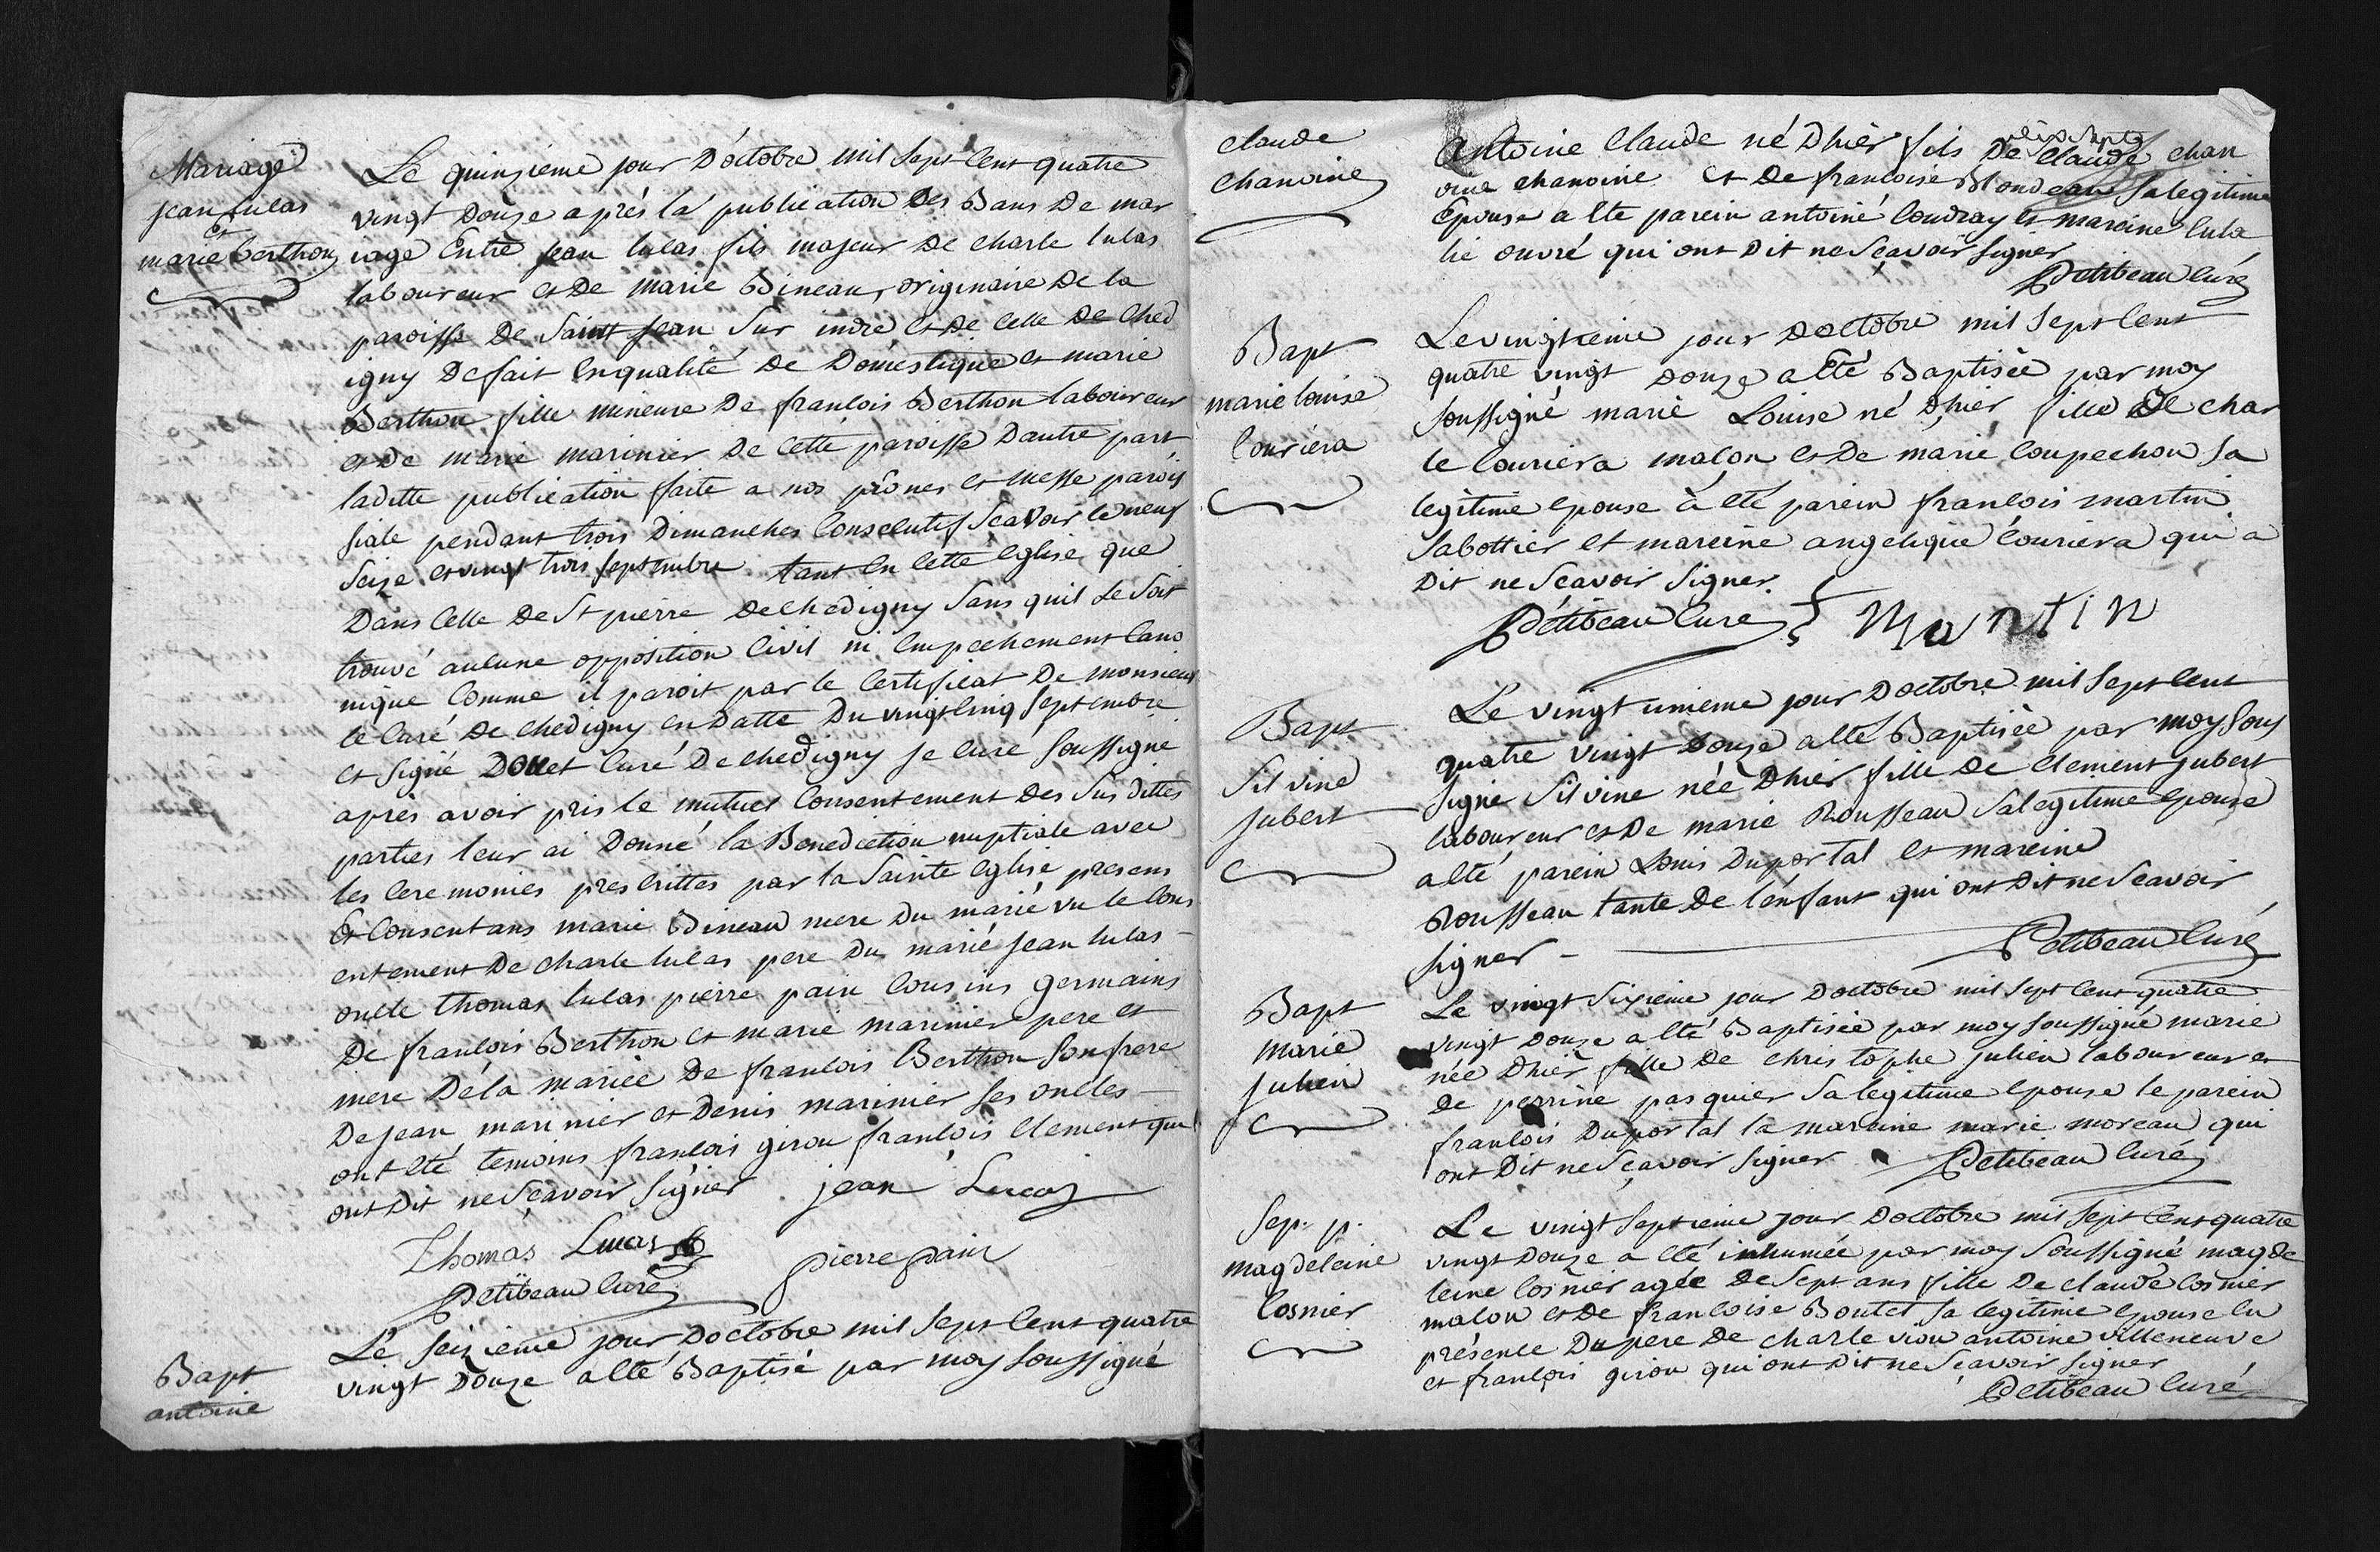 Mariage
jean lucas
et
marie berthon
Le quinzieme jour Doctobre mil Sept Cent quatre
vingt Douze apres la publication Des Bans De mar
iage Entre jean lucas fils majeur De charle lucas
laboureur et De marie Bineau, originaire De la
paroisse De Saint jean Sur indre et De Celle De Ched
igny De fait en qualité De Domestique et marie
Berthon fille mineure De francois Berthon laboureur
et De marie marinier De Cette paroisse Dautre part
laditte publication faite a nos prônes et messe parois
siale pendant trois Dimanches Consecutif Scavoir le neuf
Seize et vingt trois Septembre tant en Cette eglise que
Dans Celle De St pierre De Chedigny Sans quil Se Soit
trouvé aucune opposition Civil ni empechement Cano
nique Comme il paroit par le Certificat De monsieur
le Curé De chedigny en Datte Du vingt Cinq Septembre
et Signé Douet Curé De chedigny je Curé Soussigné
après avoir pris le mutuel Consentement Des Sus dittes
parties leur ai Donné la Benediction nuptiale avec
les Ceremonies prescrittes par la Sainte eglise presens
Et Consentans marie Bineau mere Du marié vu le Cons
entement De charle lucas pere Du marié jean lucas
oncle thomas lucas pierre pain Cousins germains
De francois Berthon et marie marinier pere et
mere De la mariée De francois Berthon Son frere
De jean marinier et Denis marinier Ses oncles
ont eté temoins francois girou francois Clement qui
ont Dit ne Scavoir Signer jean Lucas
Thomas Lucas pierre pain
Petibeau Curé
Bapt
antoine
Le Seizieme jour Doctobre mil Sept Cent quatre
vingt Douze a eté Baptisé par moy Soussigné
claude
chanoine
Antoine Claude né Dhier fils De Claude chan
oine chanoine et De francoise Blondeau Sa legitime
Epouse a ete parein antoine Coudray et mareine
lié ouvré qui ont Dit ne Scavoir Signer
Petibeau Curé
Bapt
marie louise
Couriera
Le vingtieme jour Doctobre mil Sept Cent
quatre vingt Douze a Eté Baptisée par moy
Soussigné marie Louise né Dhier fille De char
le Couriera maçon et De marie Coupechou Sa
legitime epouse à eté parein francois martin
Sabottier et mareine angelique Couriera qui a
Dit ne Scavoir Signer
Petibeau Curé f Martin
Bapt
Silvine
jubert
Le vingt unieme jour Doctobre mil Sept Cent
quatre vingt Douze a eté Baptisée par moy Sous
Signé Silvine née Dhier fille De Clement jubert
laboureur et De marie Rousseau Sa legitime epouse
a eté parein Louis Duportal et mareine
Rousseau tante De l'enfant qui ont Dit ne Scavoir
Signer - Petibeau Curé
Bapt
marie
julien
Le vingt Sixieme jour Doctobre mil Sept Cent quatre
vingt Douze a eté Baptisée par moy Soussigné marie
née Dhier fille De christophe julien laboureur et
De perrine pasquier Sa legitime epouse le parein
francois Duportal la mareine marie moreau qui
ont Dit ne Scavoir Signer Petibeau Curé
Sep. p.
magdeleine
Cosnier
Le vingt Septieme jour Doctobre mil Sept Cent quatre
vingt Douze a eté inhumée par moy Soussigné magde
leine Cosnier agée De Sept ans fille De claude Cosnier
maçon et De francoise Boutet Sa legitime epouse en
presence Du pere De charle viou antoine villeneuve
et francois girou qui ont Dit ne Scavoir Signer
Petibeau Curé